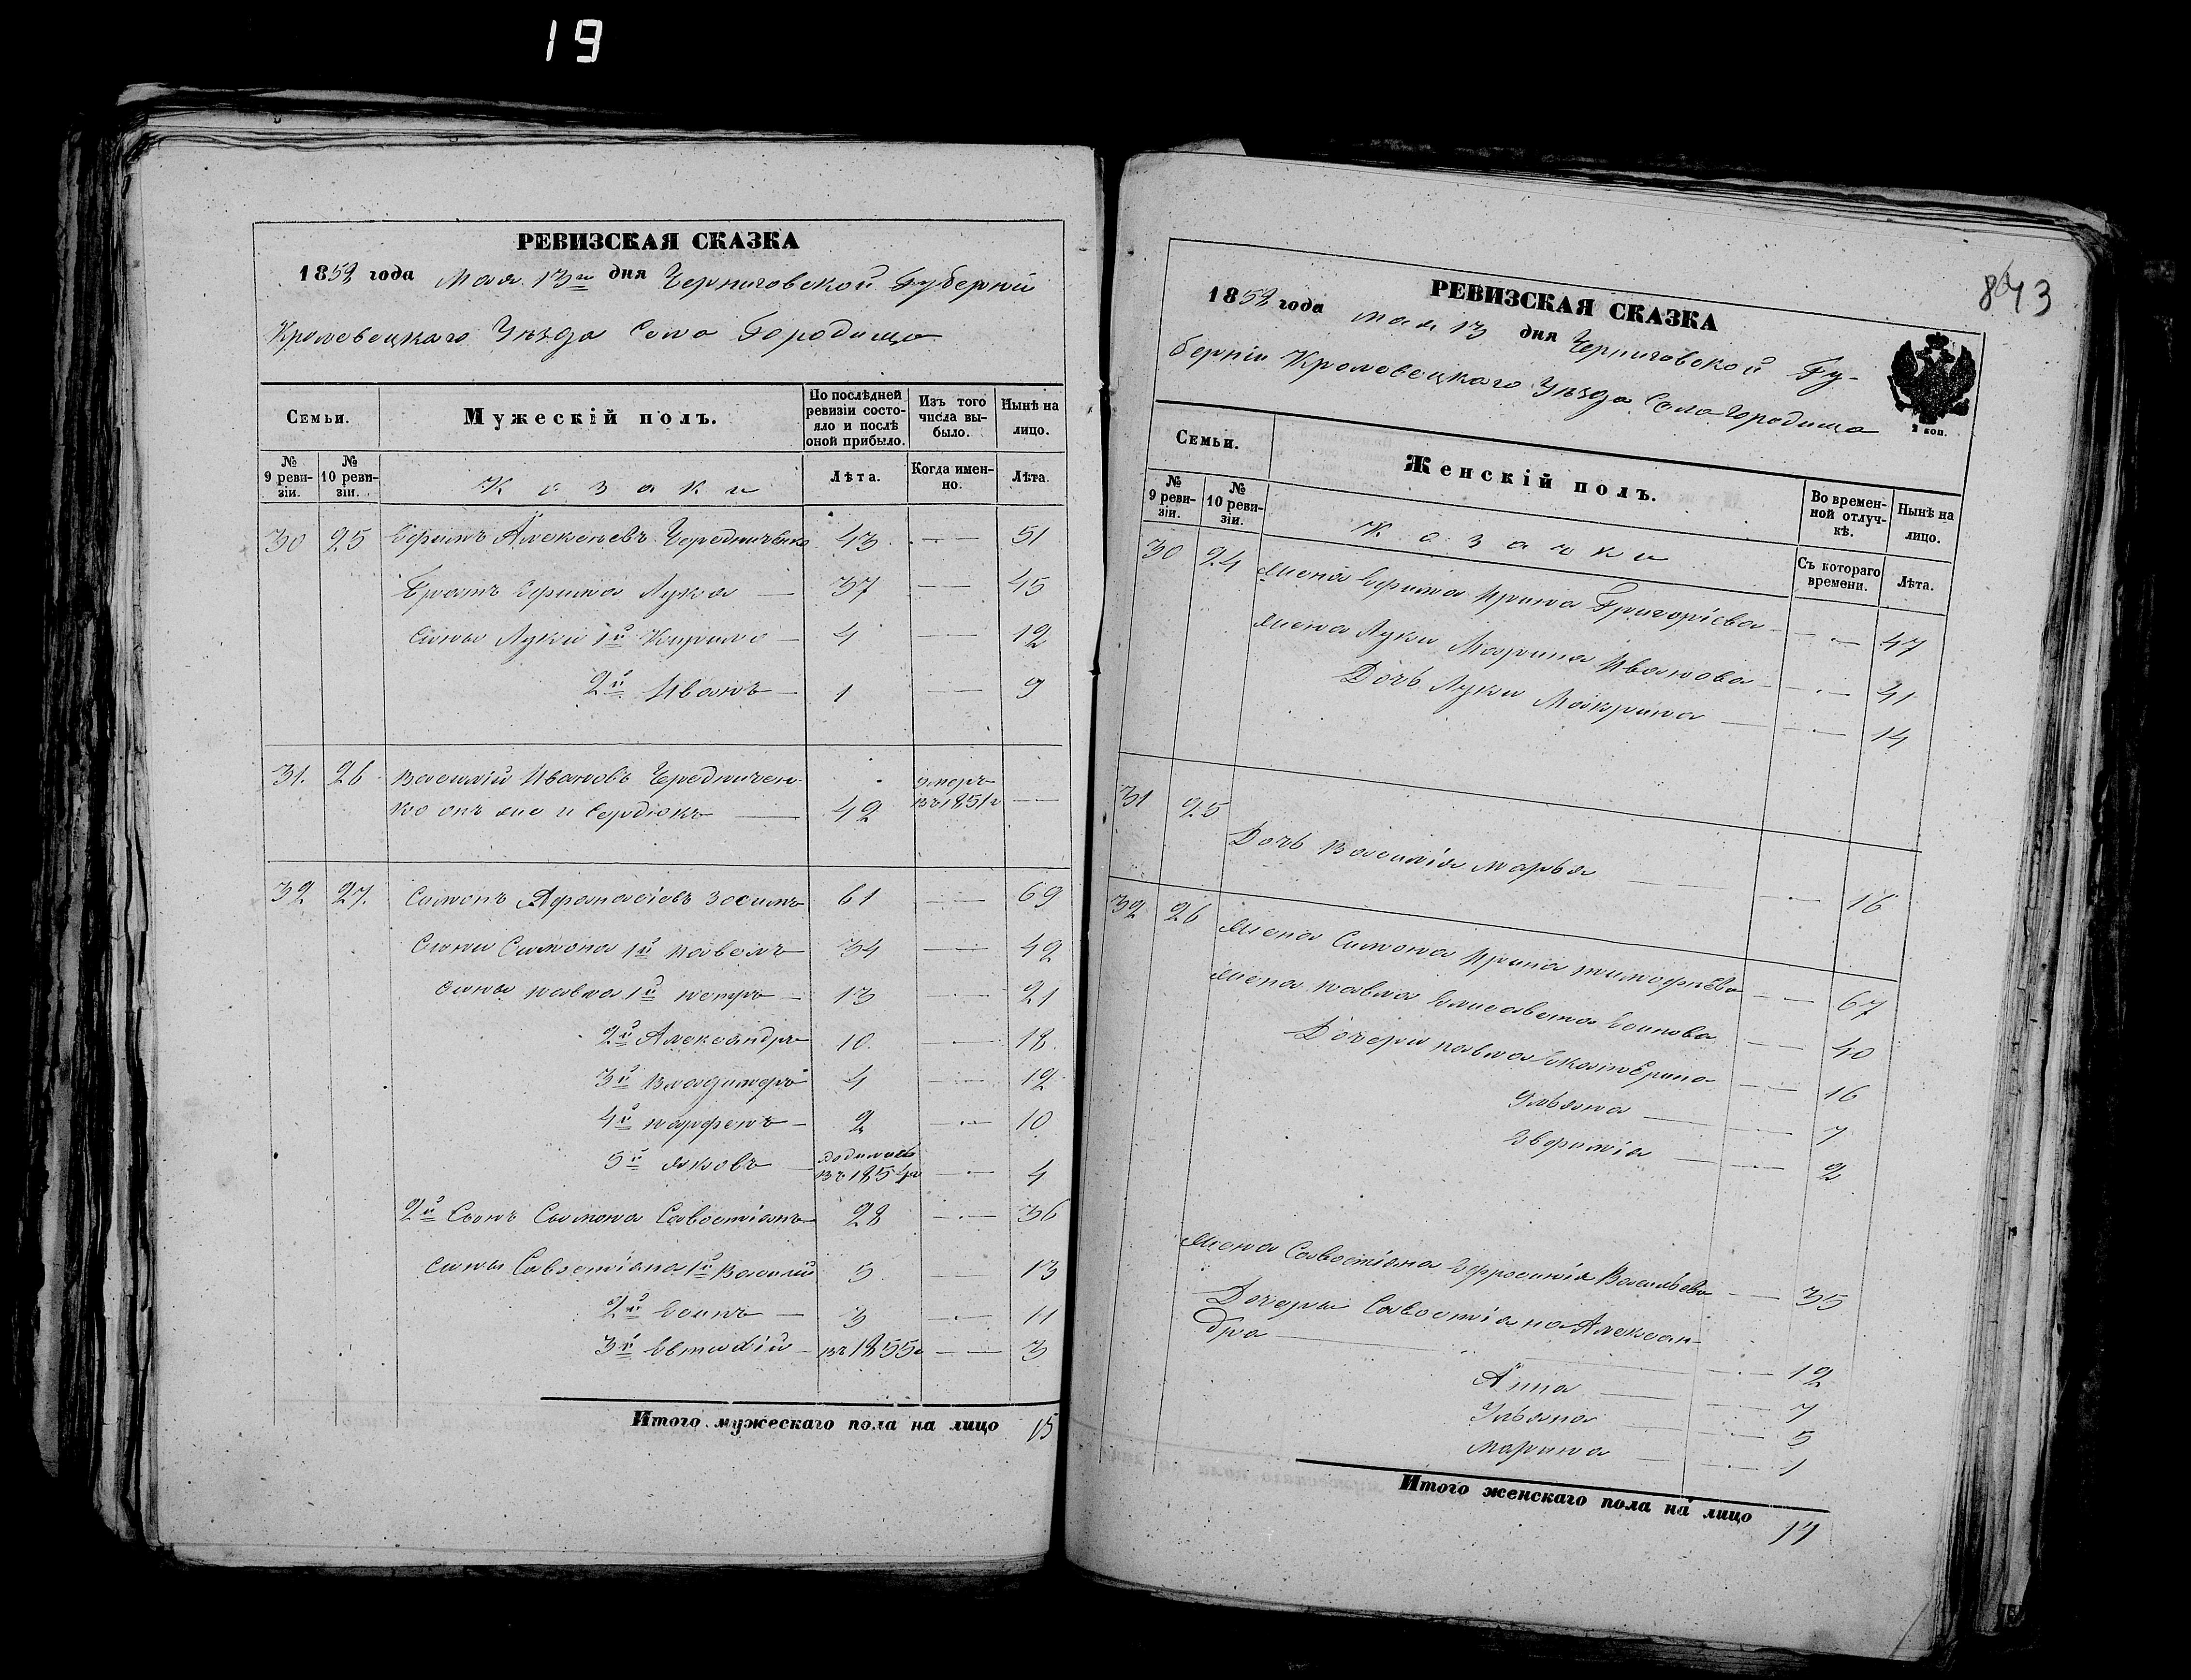 19
РЕВИЗСКАЯ СКАЗКА
1858 года Мая 13го дня Черниговской Губерніи
Кролевецкаго Уѣзда Села Городища
Семьи.
Мужескій полъ.
По послѣдней ревизіи состояло и послѣ оной прибыло.
Изъ того числа выбыло.
Нынѣ на лицо.
№ 9 ревизіи.
№ 10 ревизіи.
Козаки
Лѣта.
Когда именно.
Лѣта.
30 25 Ефимъ Алексѣевъ Чередниченко 43 — 51
Братъ Ефима Лука — 37 — 45
Сыны Луки 1й Кирило — 4 — 12
2й Иванъ — 1 — 9
31. 26 Василій Ивановъ Чередничен-
ко онъ же и Сердюкъ — 42 умеръ въ 1851г —
32 27. Симонъ Афанасіевъ Зосимъ 61 — 69
Сыны Симона 1й Павелъ 34 — 42
Сыны Павла 1й Петръ — 13 — 21
2й Александръ 10. — 18.
3й Владимеръ 4 — 12
4й Парфенъ — 2 — 10
5й Яковъ — родился въ 1854г — 4
2й Сынъ Симона Савостіанъ 28 — 36
Сыны Савостіана 1й Василій 5. — 13
2й Есипъ — 3 — 11
3й Евтихій — въ 1855г — 3
Итого мужескаго пола на лицо 15
843
РЕВИЗСКАЯ СКАЗКА
1858 года Мая 13 дня Черниговской Гу-
берніи Кролевецкаго Уѣзда Села Городища
2 коп.
Семьи.
Женскій полъ.
Во временной отлучкѣ.
Нынѣ на лицо.
№ 9 ревизіи.
№ 10 ревизіи.
Козачки
Съ котораго времени.
Лѣта.
30 24 Жена Ефима Ирина Григоріева — 47
Жена Луки Марина Иванова — 41
Дочь Луки Макрина — 14
31 25
Дочь Василія Марья — 16
32 26 Жена Симона Ирина Тимофѣева — 67
Жена Павла Елисавета Есипова — 40
Дочери Павла Екатерина — 16
Ульяна — 7
Эвфимія — 2
Жена Савостіана Эфросинія Васильева — 35
Дочери Савостіана Алексан-
дра — 12
Анна — 7
Ульяна — 5
Марина — 1
Итого женскаго пола на лицо 14